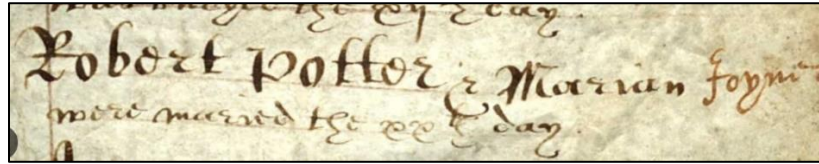 the xij th day
Robert Potter & Marian Joyner
were maried the xx th day